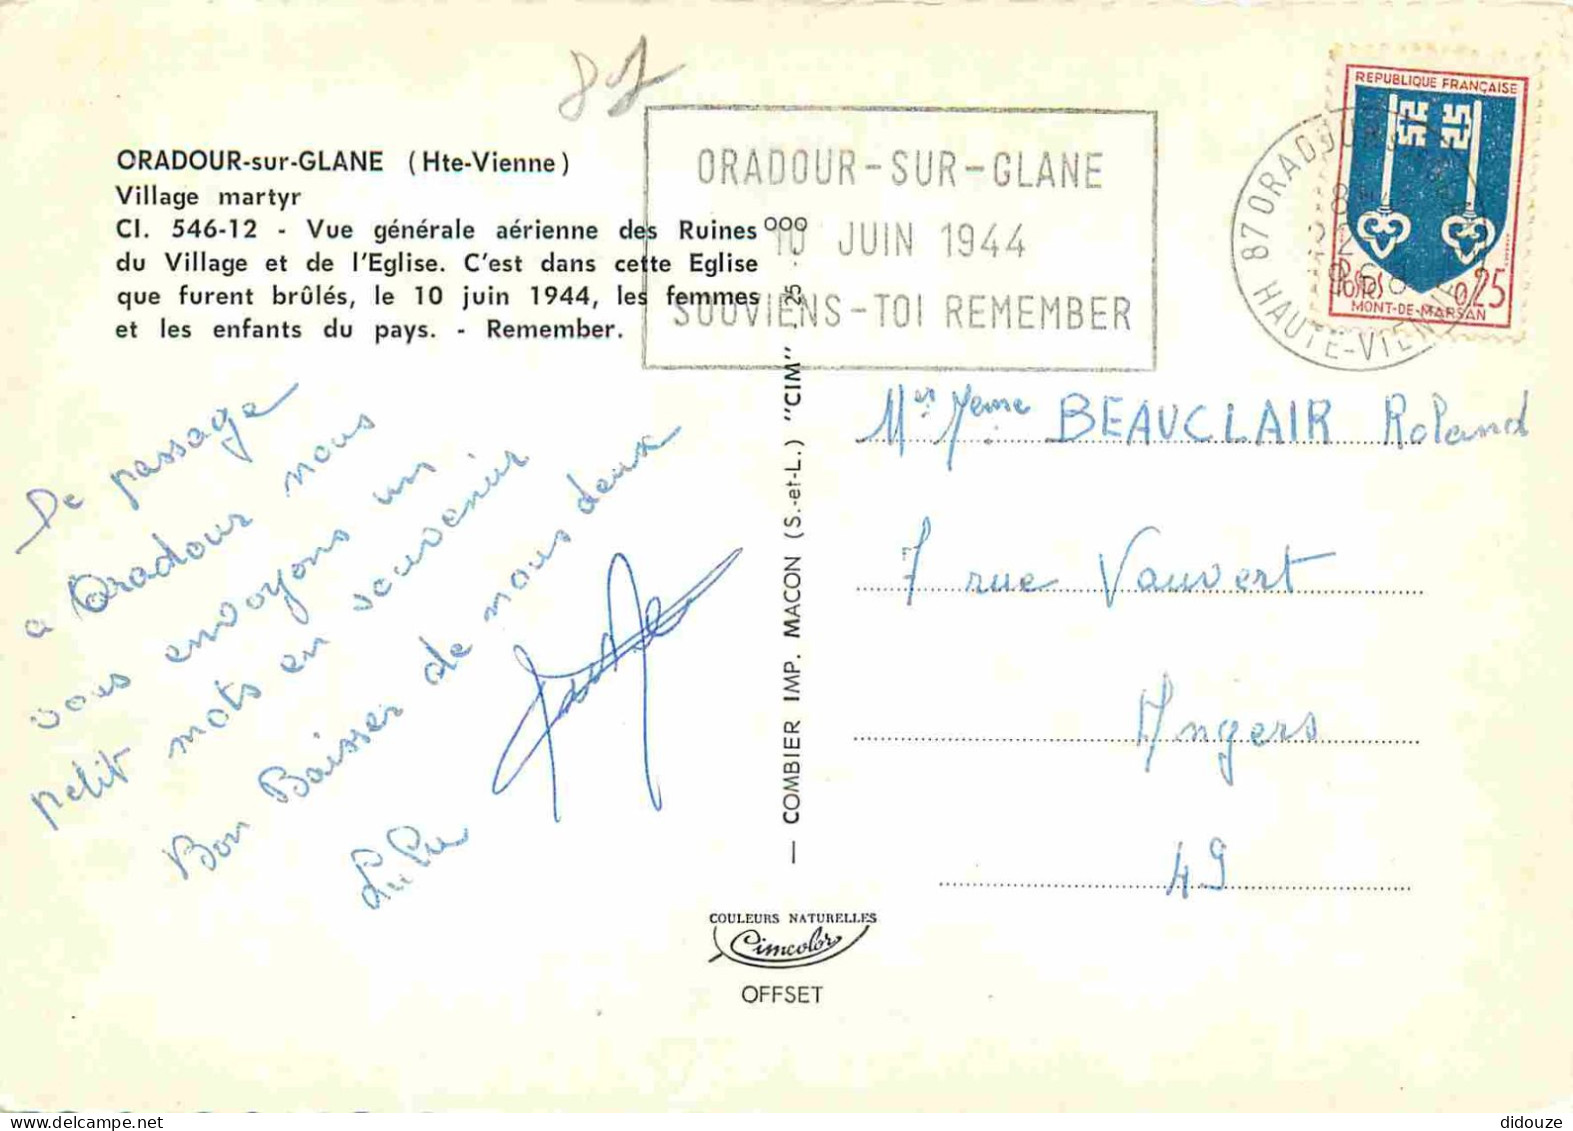 ORADOUR-sur-GLANE (Hte-Vienne)
Village martyr
CI. 546-12 - Vue générale aérienne des Ruines
du Village et de l'Eglise. C'est dans cette Eglise
que furent brûlés, le 10 juin 1944, les femmes
et les enfants du pays. - Remember.
ORADOUR-SUR-GLANE
10 JUIN 1944
SOUVIENS-TOI REMEMBER
REPUBLIQUE FRANÇAISE
Postes 0,25
MONT-DE-MARSAN
87 ORADOUR
HAUTE-VIENNE
De passage
a Oradour nous
vous envoyons un
petit mots en souvenir
Bon Baisser de nous deux
COMBIER IMP. MACON (S.-et-L.) "CIM"
Mr Mme BEAUCLAIR Roland
7 rue Vauvert
Angers
49
COULEURS NATURELLES
Cimcolor
OFFSET
didouze